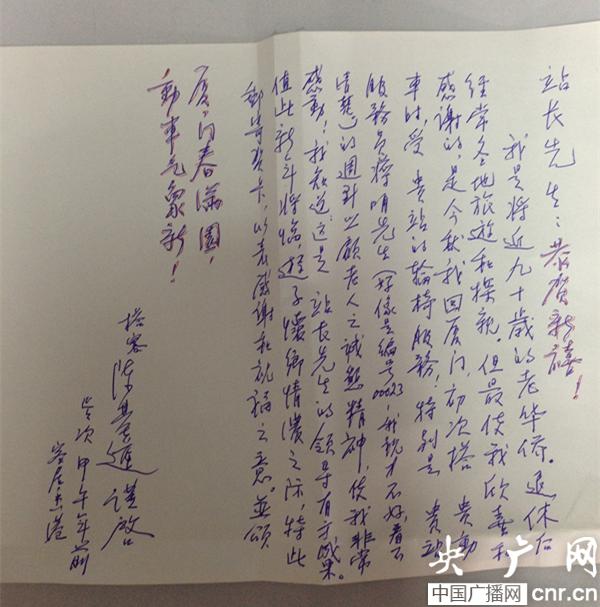 站长先生：恭贺新禧！
我是将近九十歲的老华侨。退休后
经常各地旅遊和探親。但最使我欣喜和
感谢的，是今秋我回厦门，初次搭 貴動
車时，受 貴站的輪椅服務！特别是 貴站
服務员 先生（好像是编号00023，我视力不好，看不
清楚）的週到 顾老人之诚懇精神，使我非常
感動！我知道：这是 站长先生的领导有方 成果。
值此新年将临，遊子懷鄉情濃之际，特此
郵寄贺卡，以表感谢和祝福之意。並颂
厦门春满園！
動車气象新！
搭客 陈 謹啓
岁次甲午年前
客居 港
央广网
中国广播网 cnr.cn